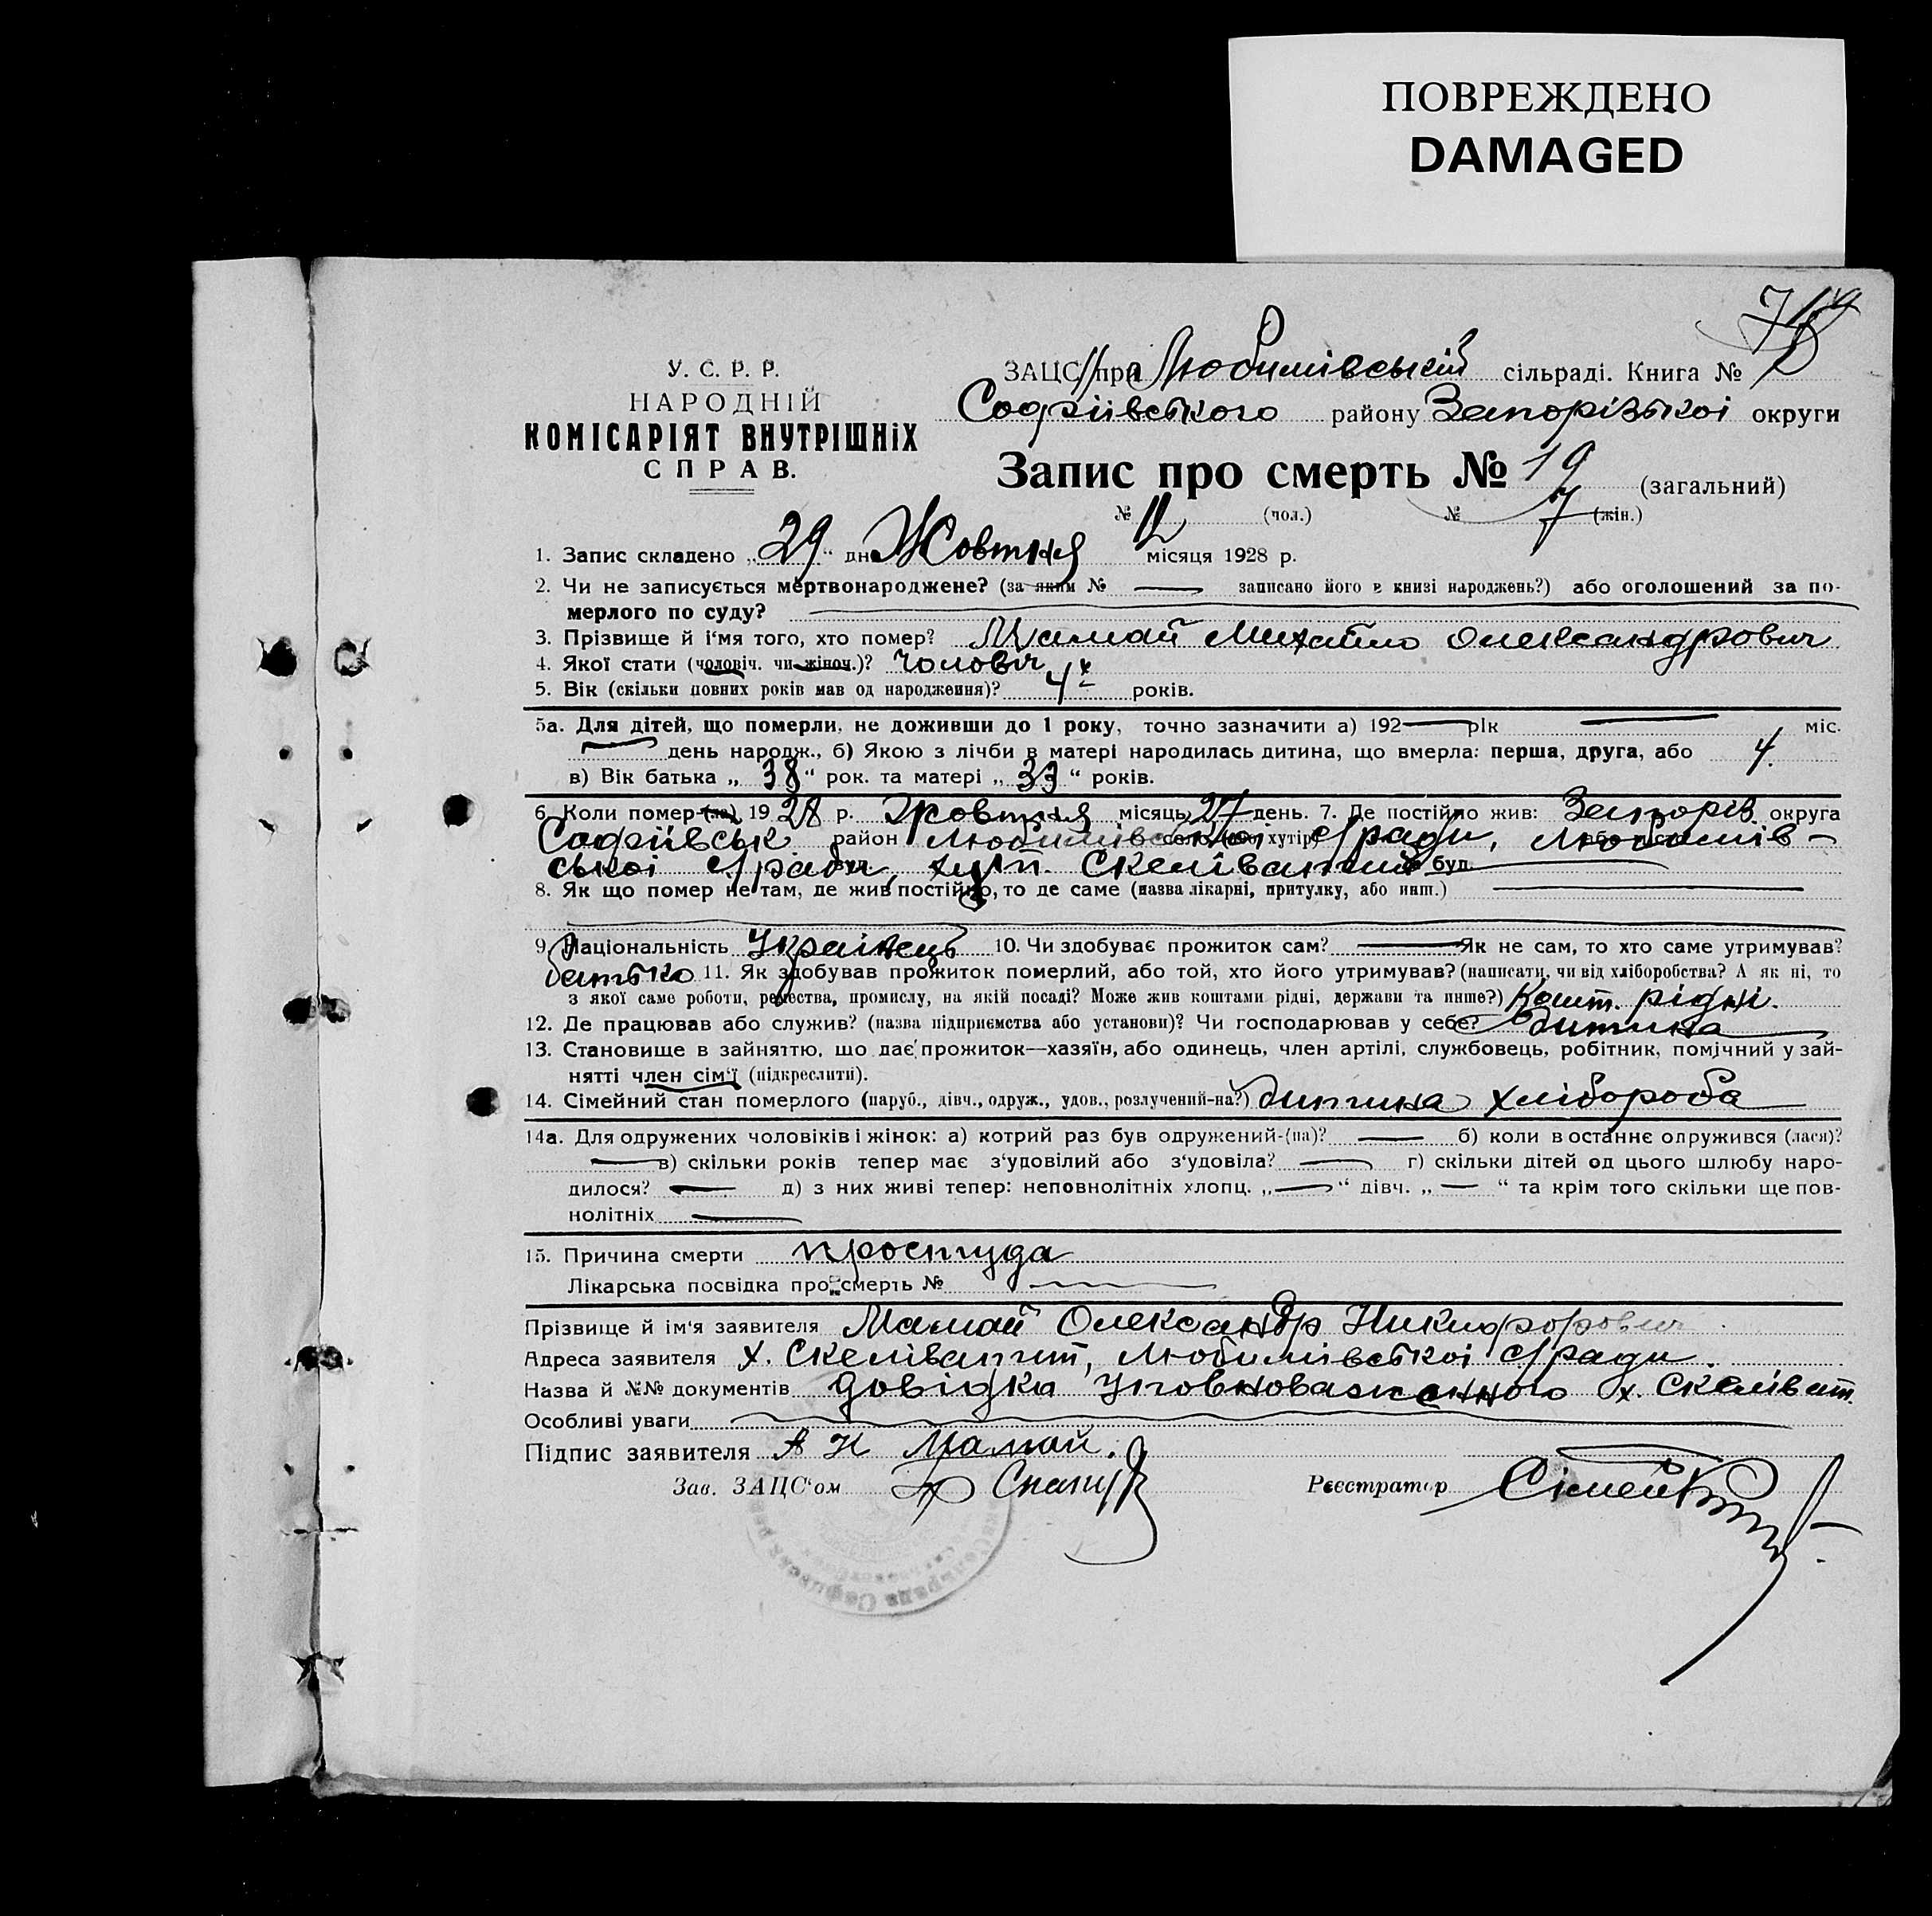 ПОВРЕЖДЕНО
DAMAGED
У. С. Р. Р.
НАРОДНІЙ
КОМІСАРІЯТ ВНУТРІШНІХ
СПРАВ.
ЗАЦС при Любимівській сільраді. Книга №
Софіївського району Запорізькоі округи
Запис про смерть № 19 (загальний)
№ 12 (чол.) № 7 (жін.)
1. Запис складено „ 29 “ дня Жовтня місяця 1928 р.
2. Чи не записується мертвонароджене? (за яким № — записано його в книзі народжень?) або оголошений за по-
мерлого по суду?
3. Прізвище й і'мя того, хто помер? Мамай Михайло Олександрович
4. Якої стати (чоловіч. чи жіноч.)? чоловіч
5. Вік (скільки повних років мав од народження)? 4х років.
5а. Для дітей, що померли, не доживши до 1 року, точно зазначити а) 192— рік — міс.
— день народж., б) Якою з лічби в матері народилась дитина, що вмерла: перша, друга, або 4.
в) Вік батька „ 38 “ рок. та матері „ 33 “ років.
6. Коли помер-(ла) 1928 р. Жовтня місяць 27 день. 7. Де постійно жив: Запоріз. округа
Софіївськ район Любимівськоі с/ради, Любимів-
ськоі с/ради, хут. Скеліватий буд.
8. Як що помер не там, де жив постійно, то де саме (назва лікарні, притулку, або инш.) —
9. Національність Українець 10. Чи здобуває прожиток сам? — Як не сам, то хто саме утримував?
батько 11. Як здобував прожиток померлий, або той, хто його утримував? (написати, чи від хліборобства? А як ні, то
з якої саме роботи, ремества, промислу, на якій посаді? Може жив коштами рідні, держави та инше?) Кошт. рідні.
12. Де працював або служив? (назва підприємства або установи)? Чи господарював у себе? Дитина
13. Становище в зайняттю, що дає прожиток—хазяїн, або одинець, член артілі, службовець, робітник, помічний у зай-
нятті член сім'ї (підкреслити).
14. Сімейний стан померлого (паруб., дівч., одруж., удов., розлучений-на?) дитина хлібороба
14а. Для одружених чоловіків і жінок: а) котрий раз був одружений-(на)? — б) коли востаннє одружився (лася)?
— в) скільки років тепер має з'удовілий або з'удовіла? — г) скільки дітей од цього шлюбу наро-
дилося? — д) з них живі тепер: неповнолітніх хлопц. „ — “ дівч. „ — “ та крім того скільки ще пов-
нолітніх —
15. Причина смерти простуда
Лікарська посвідка про смерть № —
Прізвище й ім'я заявителя Мамай Олександр Никифорович
Адреса заявителя х. Скеліватит, Любимівськоі с/ради.
Назва й №№ документів довідка уповноваженного х. Скеліват.
Особливі уваги
Підпис заявителя А Н Мамай.
Зав. ЗАЦС'ом Реєстратор